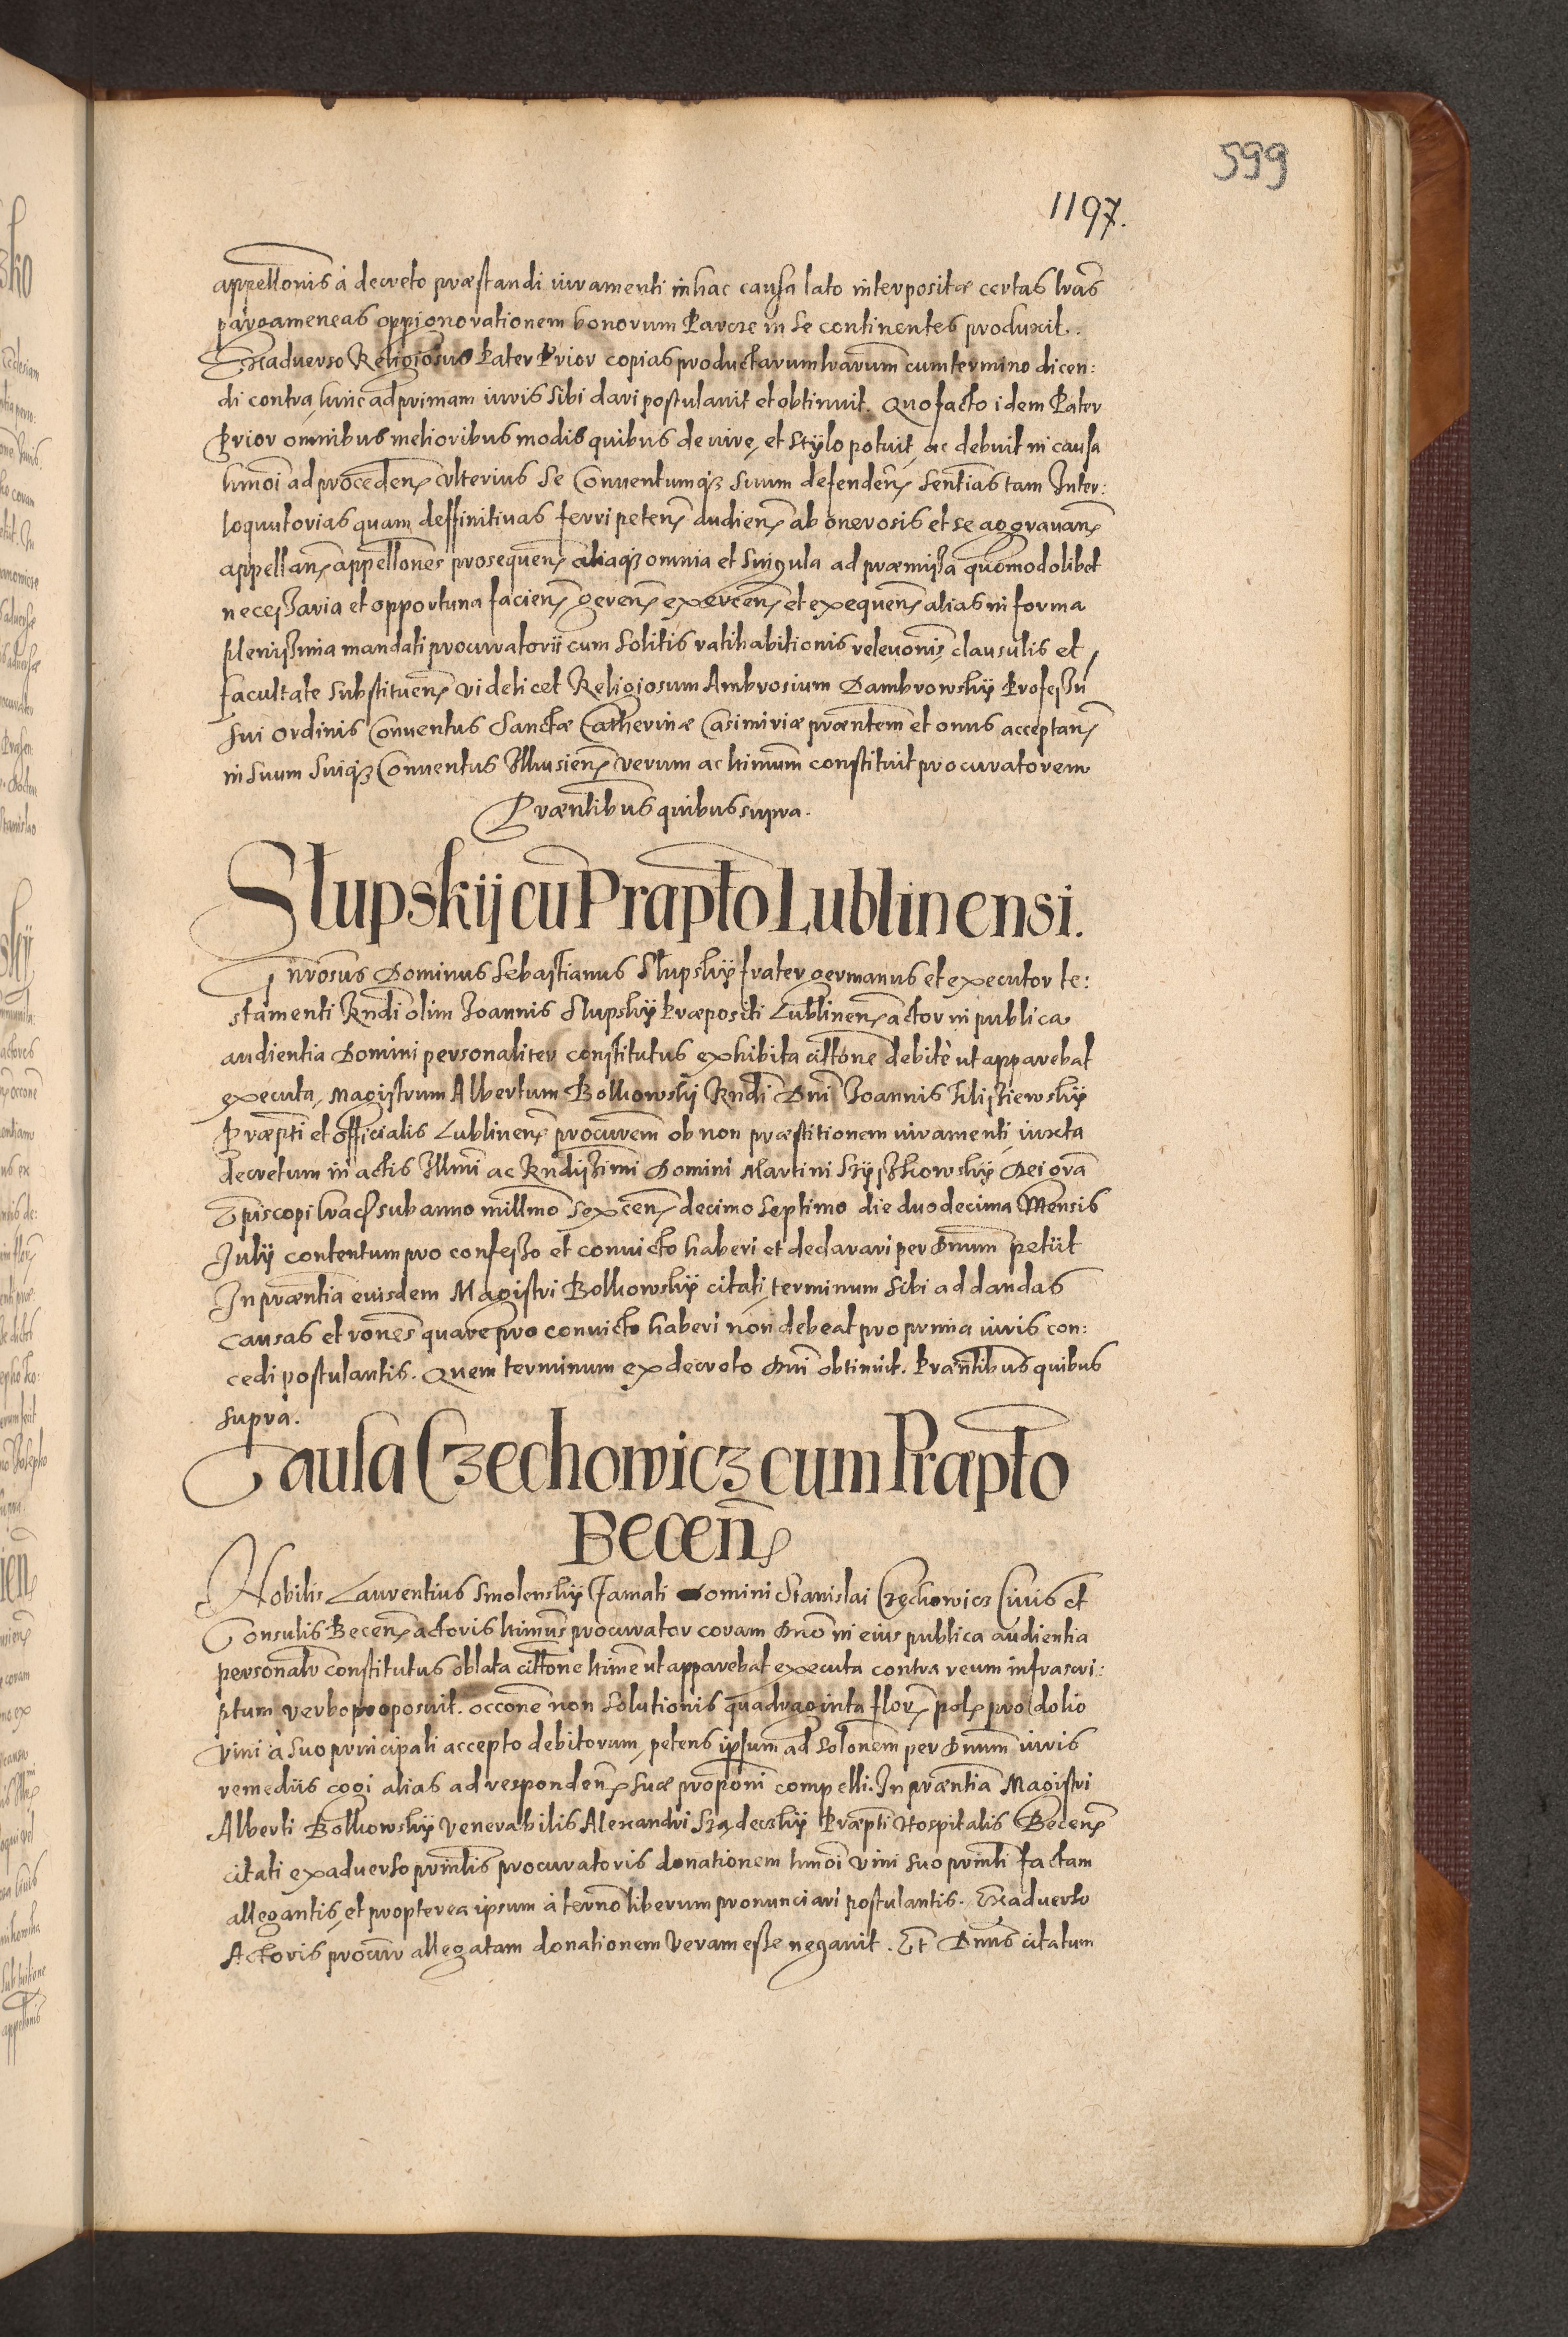 599
1197.
appellonis à decreto præstandi iuramenti in hac causa lato interpositæ certas lras
pargameneas oppignorationem bonorum Parcze in se continentes produxit.
Exaduerso Religiosus Pater Prior copias productarum lrarum cum termino dicen:
di contra hinc ad primam iuris sibi dari postulauit et obtinuit. Quo facto idem Pater
Prior omnibus melioribus modis quibus de iure, et stylo potuit, ac debuit in causa
hmoi ad proceden. vlterius se Conuentumq3 suum defenden. sentias tam Inter:
loquutorias quam deffinitiuas ferri peten. audien. ab onerosis et se aggrauan.
appellan. appellones prosequen. aliaq3 omnia et singula ad præmissa quomodolibet
necessaria et opportuna facien. geren. exercen. et exequen. alias in forma
plenissima mandati procuratorii cum solitis ratihabitionis releuonis, clausulis et
facultate substituen. videlicet Religiosum Ambrosium Dambrowsky Professu
sui ordinis Conuentus Sanctæ Catherinæ Casimiriæ præntem et onus acceptan.
in suum suiq3 Conuentus Ilkusien. verum ac ltimum constituit procuratorem
Præntibus quibus supra.
Slupskij cu Præpto Lublinensi.
Gnrosus Dominus Sebastianus Slupsky frater germanus et executor te:
stamenti Rndi olim Joannis Slupsky Præpositi Lublinen. actor in publica
audientia Domini personaliter constitutus exhibita cittone debitè ut apparebat
executa, Magistrum Albertum Bolkowsky Rndi Dni Joannis
Præpti et officialis Lublinen. procurem ob non præstitionem iuramenti iuxta
decretum in actis Illmi ac Rndissimi Domini Martini Szyszkowsky Dei gra
Episcopi Crac. sub anno millmo sexcen. decimo septimo die duodecima Mensis
July contentum pro confesso et conuicto haberi et declarari per Dnum petiit
In præntia eiusdem Magistri Bolkowsky citati, terminum sibi ad dandas
causas et rones quare pro conuicto haberi non debeat pro prima iuris con:
cedi postulantis. Quem terminum ex decreto Dni obtinuit. Præntibus quibus
supra.
Causa Czechowicz cum Præpto
Becen.
Nobilis Laurentius Smolensky Famati Domini Stanislai Czechowicz Ciuis et
Consulis Becen. actoris ltimus procurator coram Dno in eius publica audientia
personalr constitutus oblata cittone ltime ut apparebat executa contra reum infrascri:
ptum verbo proposuit. occone non solutionis quadraginta flor. pol. pro dolio
vini à suo principali accepto debitorum, petens ipsum ad solonem per Dnum iuris
remediis cogi alias ad responden. suæ proponi compelli. In præntia Magistri
Alberti Bolkowsky Venerabilis Alexandri Præpti Hospitalis Becen.
citati exaduerso prinlis procuratoris donationem hmoi vini suo prinli factam
allegantis, et propterea ipsum à termo liberum pronunciari postulantis. Exaduerso
Actoris procur allegatam donationem veram esse negauit. Et Dnus citatum